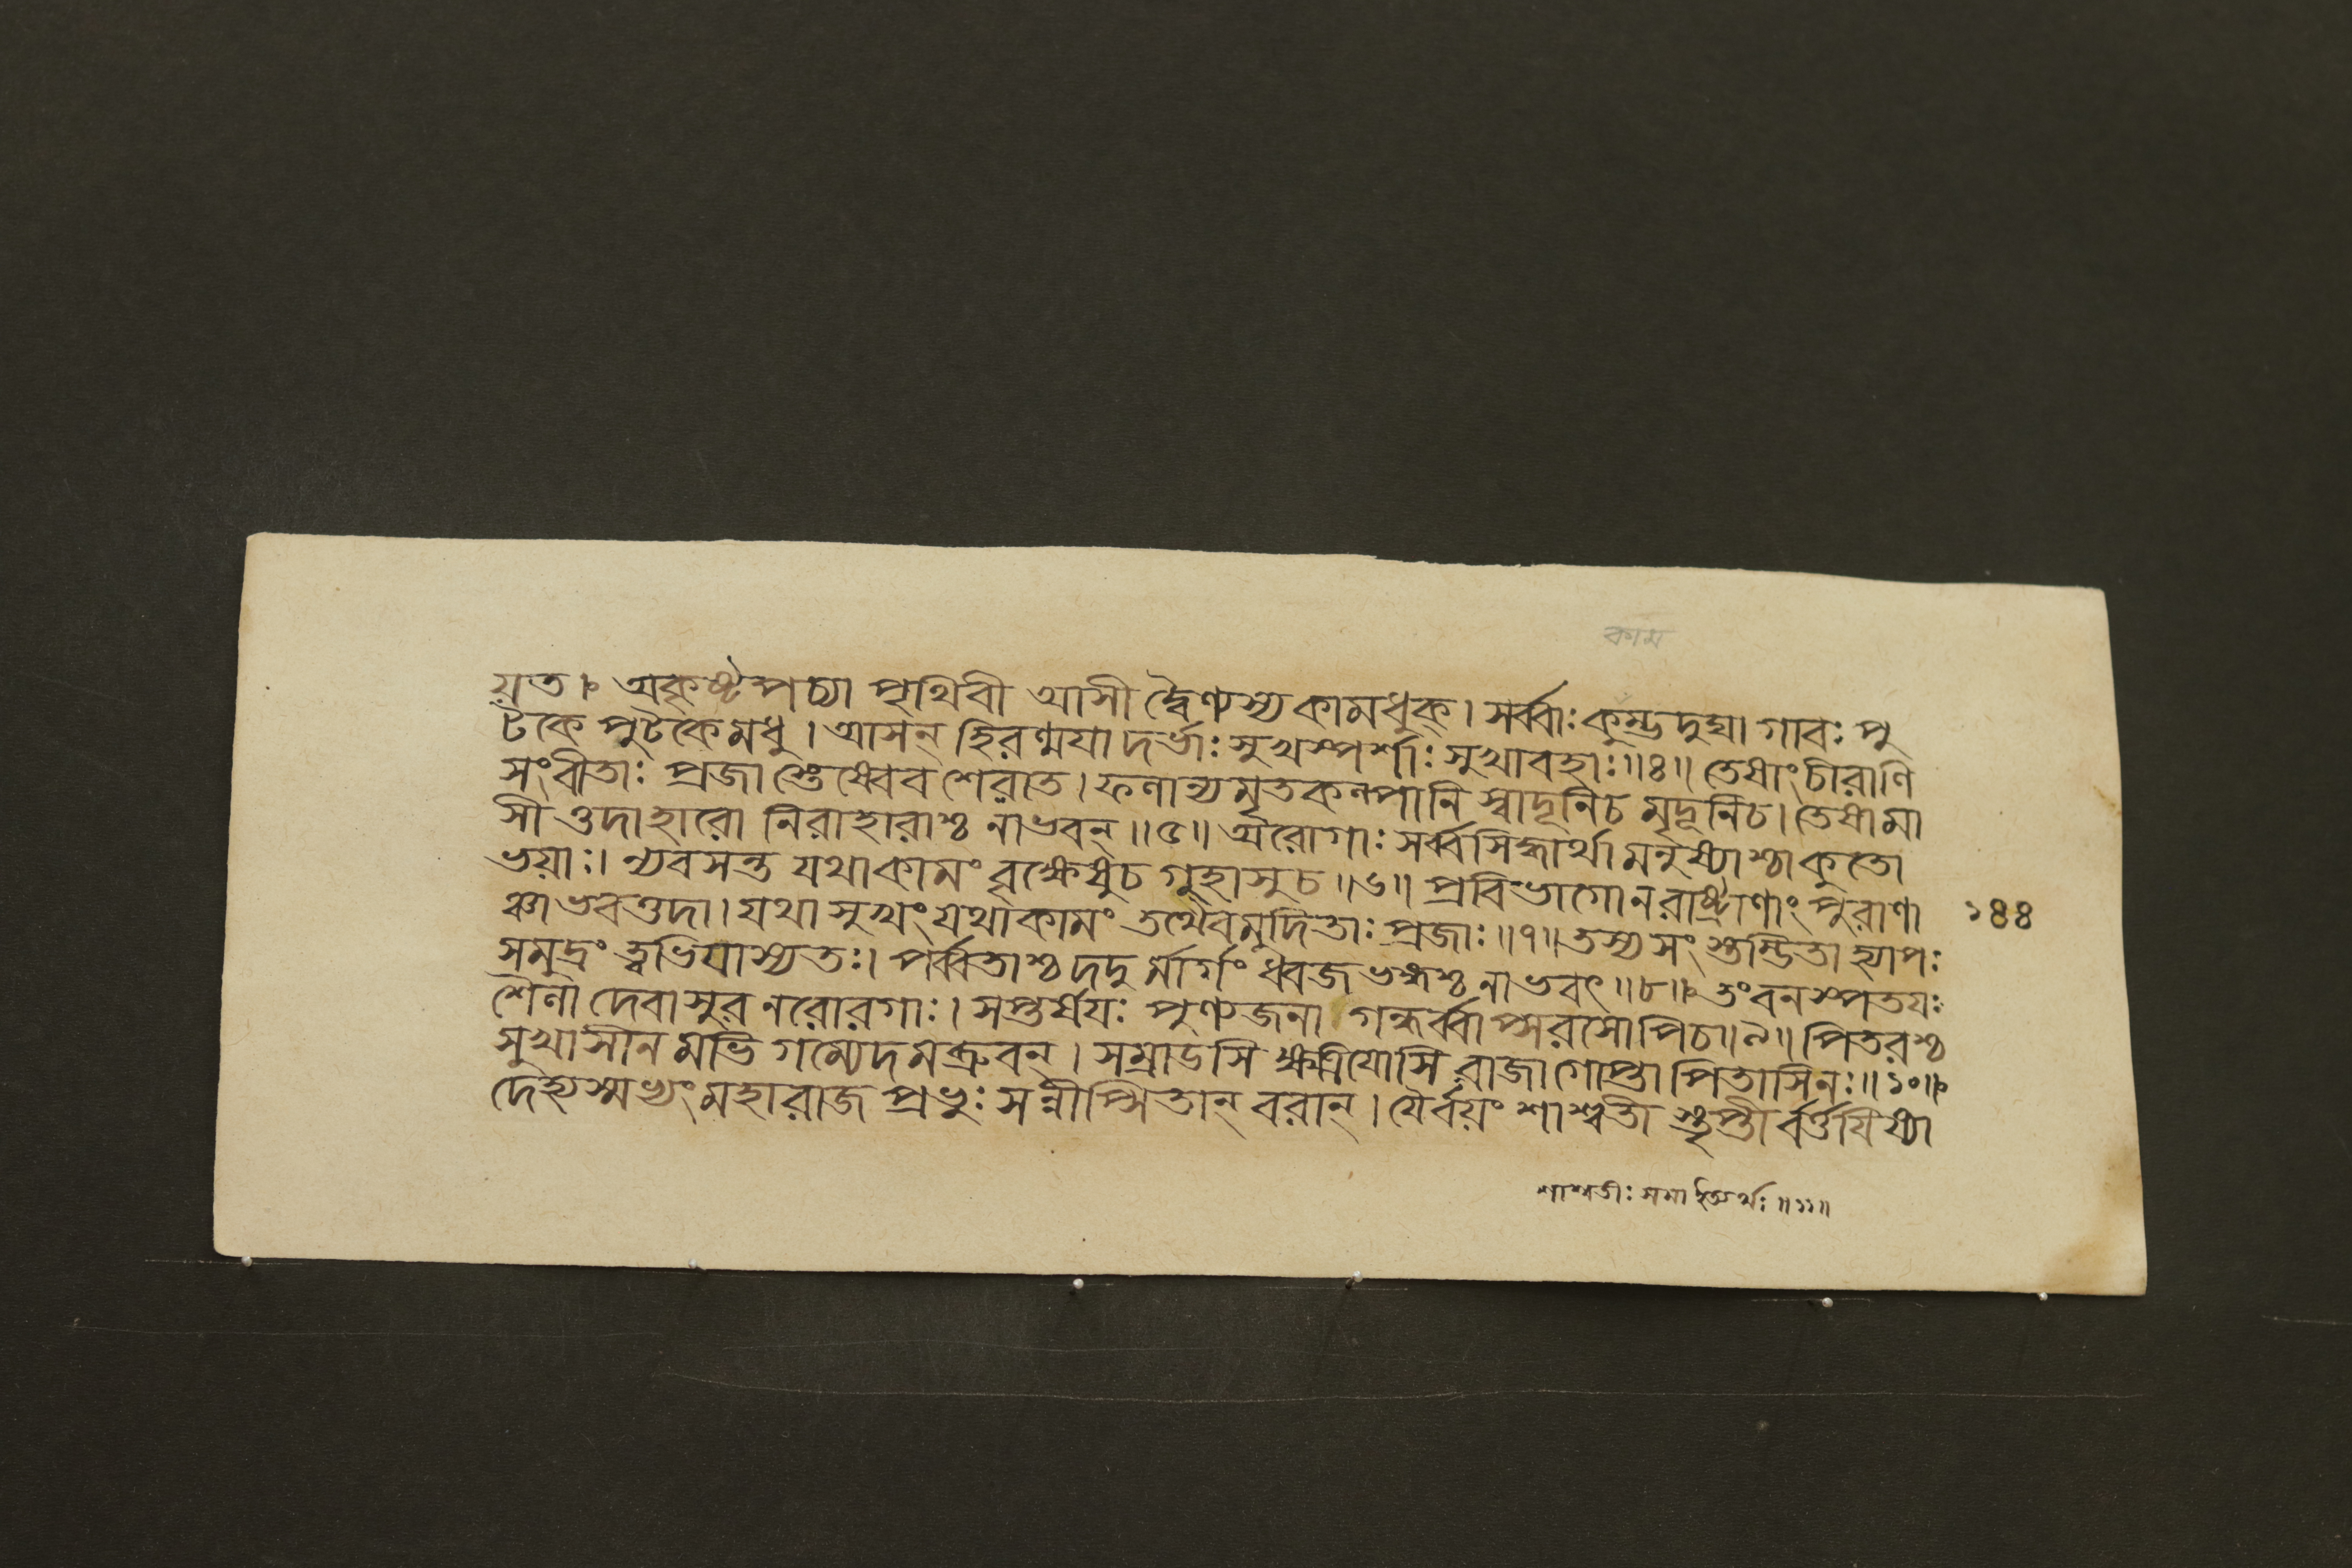 কাম
য়ত। অকৃষ্টপচ্যা পৃথিবী আসী দ্বৈণ্যস্যকামধুক্। সর্ব্বাঃকুম্ভদুঘা গাবঃ পু
টকে পুটকেমধু। আসন্ হিরণ্ময়াদর্ভাঃসুখস্পর্শাঃ সুখাবহাঃ॥৪॥ তেষাংচীরাণি
সংবীতাঃ প্রজাস্তেষ্বেব শেরাত। ফলান্যমৃতকল্পানি স্বাদূনিচ মৃদূনিচ। তেষামা
সী ত্তদাহারো নিরাহারাশ্চ নাভবন্॥৫॥ অরোগাঃ সর্ব্বসিদ্ধার্থা মনুষ্যাশ্চাকুতো
ভয়াঃ। ন্যবসন্ত যথাকামং বৃক্ষেষুচ গুহাসুচ॥৬॥ প্রবিভাগোনরাষ্ট্রাণাং পুরাণা
ঞ্চাভবত্তদা। যথাসুখংযথাকামং তথৈবমুদিতাঃ প্রজাঃ॥৭॥তস্য সংস্তম্ভিতাহ্যাপঃ
১৪৪
সমুদ্রং ত্বভিযাস্যতঃ। পর্ব্বতাশ্চদদুর্মার্গং ধ্বজভঙ্গশ্চ নাভবৎ॥৮॥ তংবনস্পতয়ঃ
শৈলা দেবাসুরনরোরগাঃ। সপ্তর্ষয়ঃ পুণ্যজনা গন্ধর্ব্বাপ্সরসোপিচ॥৯॥ পিতরশ্চ
সুখাসীনমভিগম্যেদমব্রুবন্। সম্রাডসি ক্ষত্রিয়োসি রাজাগোপ্তা পিতাসিনঃ॥১০॥
দেহ্যস্মভ্যংমহারাজ প্রভুঃ সন্নীপ্সিতান্ বরান্। যৈর্বয়ং শাশ্বতী স্তৃপ্তী র্বর্ত্তয়িষ্যা
শাশ্বতীঃ সমা ইত্যর্থঃ॥১১॥